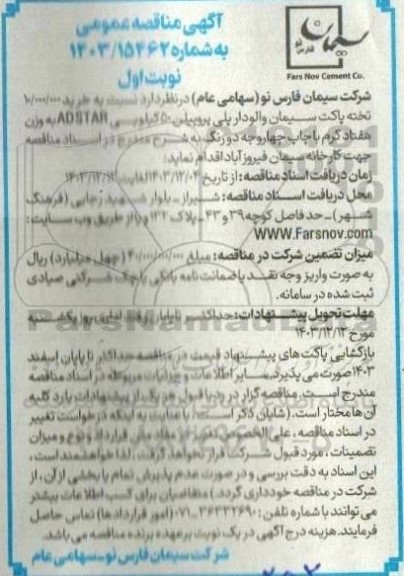 آگهی مناقصه عمومی
به شماره ۱۴۰۳/۱۵۴۶۲
نوبت اول
سیمان
فارس نو
Fars Nov Cement Co.
شرکت سیمان فارس نو (سهامی عام) در نظر دارد نسبت به خرید ۱۰/۰۰۰/۰۰۰
تخته پاکت سیمان والودار پلی پروپیلن ۵۰ کیلویی ADSTAR به وزن
هفتاد گرم با چاپ چهار وجه دو رنگ به شرح مندرج در اسناد مناقصه
جهت کارخانه سیمان فیروزآباد اقدام نماید:
زمان دریافت اسناد مناقصه: از تاریخ ۱۴۰۳/۱۲/۰۴ لغایت
محل دریافت اسناد مناقصه: شیراز - بلوار شهید رجایی (فرهنگ
شهر) - حد فاصل کوچه ۳۹ و ۴۳ - پلاک و یا از طریق وب سایت:
WWW.Farsnov.com
میزان تضمین شرکت در مناقصه: مبلغ ۴۰/۰۰۰/۰۰۰/۰۰۰ (چهل میلیارد) ریال
به صورت واریز وجه نقد یا ضمانت نامه بانکی یا چک شرکتی صیادی
ثبت شده در سامانه.
مهلت تحویل پیشنهادات: حداکثر تا پایان وقت اداری روز یکشنبه
مورخ ۱۴۰۳/۱۲/۱۲
بازگشایی پاکت های پیشنهاد قیمت در مناقصه حداکثر تا پایان اسفند
۱۴۰۳ صورت می پذیرد. سایر اطلاعات و جزئیات مربوطه در اسناد مناقصه
مندرج است. مناقصه گزار در رد یا قبول هر یک از پیشنهادات یا رد کلیه
آن ها مختار است. (شایان ذکر است، با عنایت به اینکه درخواست تغییر
در اسناد مناقصه، علی الخصوص تغییر در مفاد متن قرارداد و نوع و میزان
تضمینات، مورد قبول شرکت قرار نخواهد گرفت، لذا خواهشمند است،
این اسناد به دقت بررسی و در صورت عدم پذیرش تمام یا بخشی از آن، از
شرکت در مناقصه خودداری گردد.) متقاضیان برای کسب اطلاعات بیشتر
می توانند با شماره تلفن: ۳۶۳۳۲۶۹۰-۰۷۱ (امور قراردادها) تماس حاصل
فرمایند. هزینه درج آگهی در یک نوبت بر عهده برنده مناقصه می باشد.
شرکت سیمان فارس نو - سهامی عام